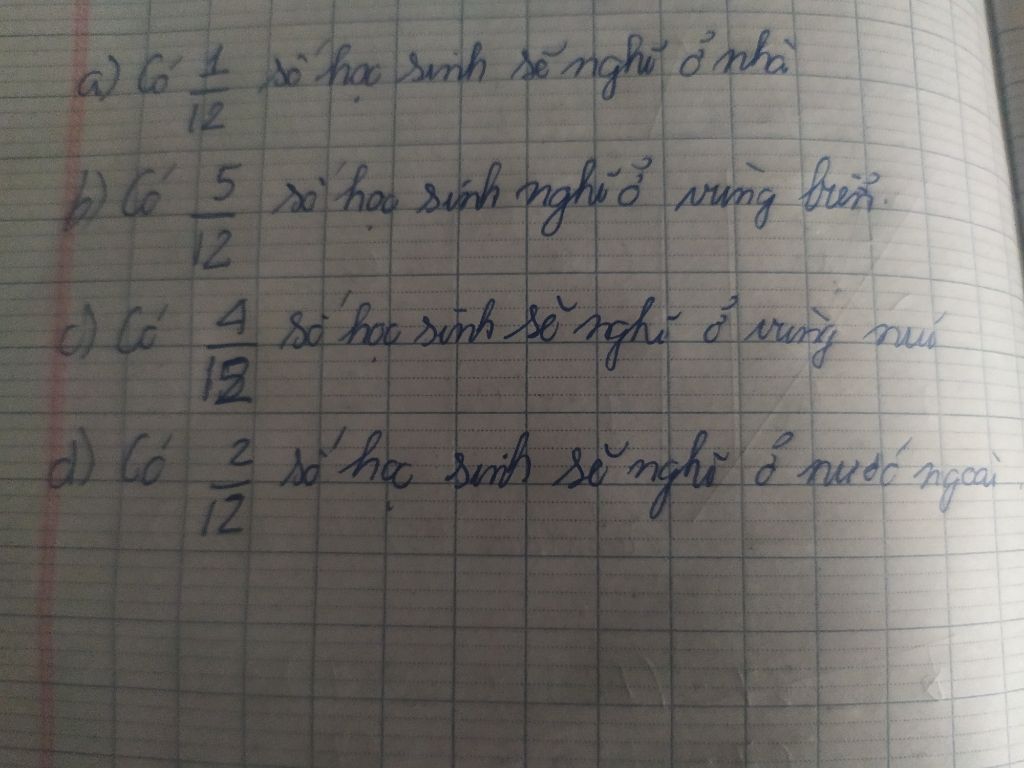 a) Có 1/12 số học sinh sẽ nghĩ ở nhà
b) Có 5/12 số học sinh nghĩ ở vùng biển.
c) Có 4/12 số học sinh sẽ nghĩ ở vùng núi
d) Có 2/12 số học sinh sẽ nghĩ ở nước ngoài.